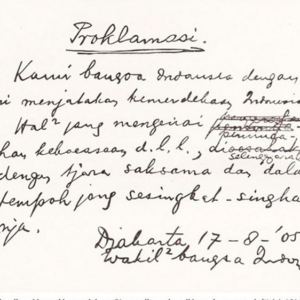 Proklamasi.
Kami bangsa Indonesia dengan
ni menjatakan kemerdekaan Indonesia
Hal² jang mengenai
peminda-
han kekoeasaan d.l.l., diselenggarakan
dengan tjara saksama dan dala
tempoh jang sesingkat-singka
nja.
Djakarta 17-8-'05
Wakil² bangsa Indon